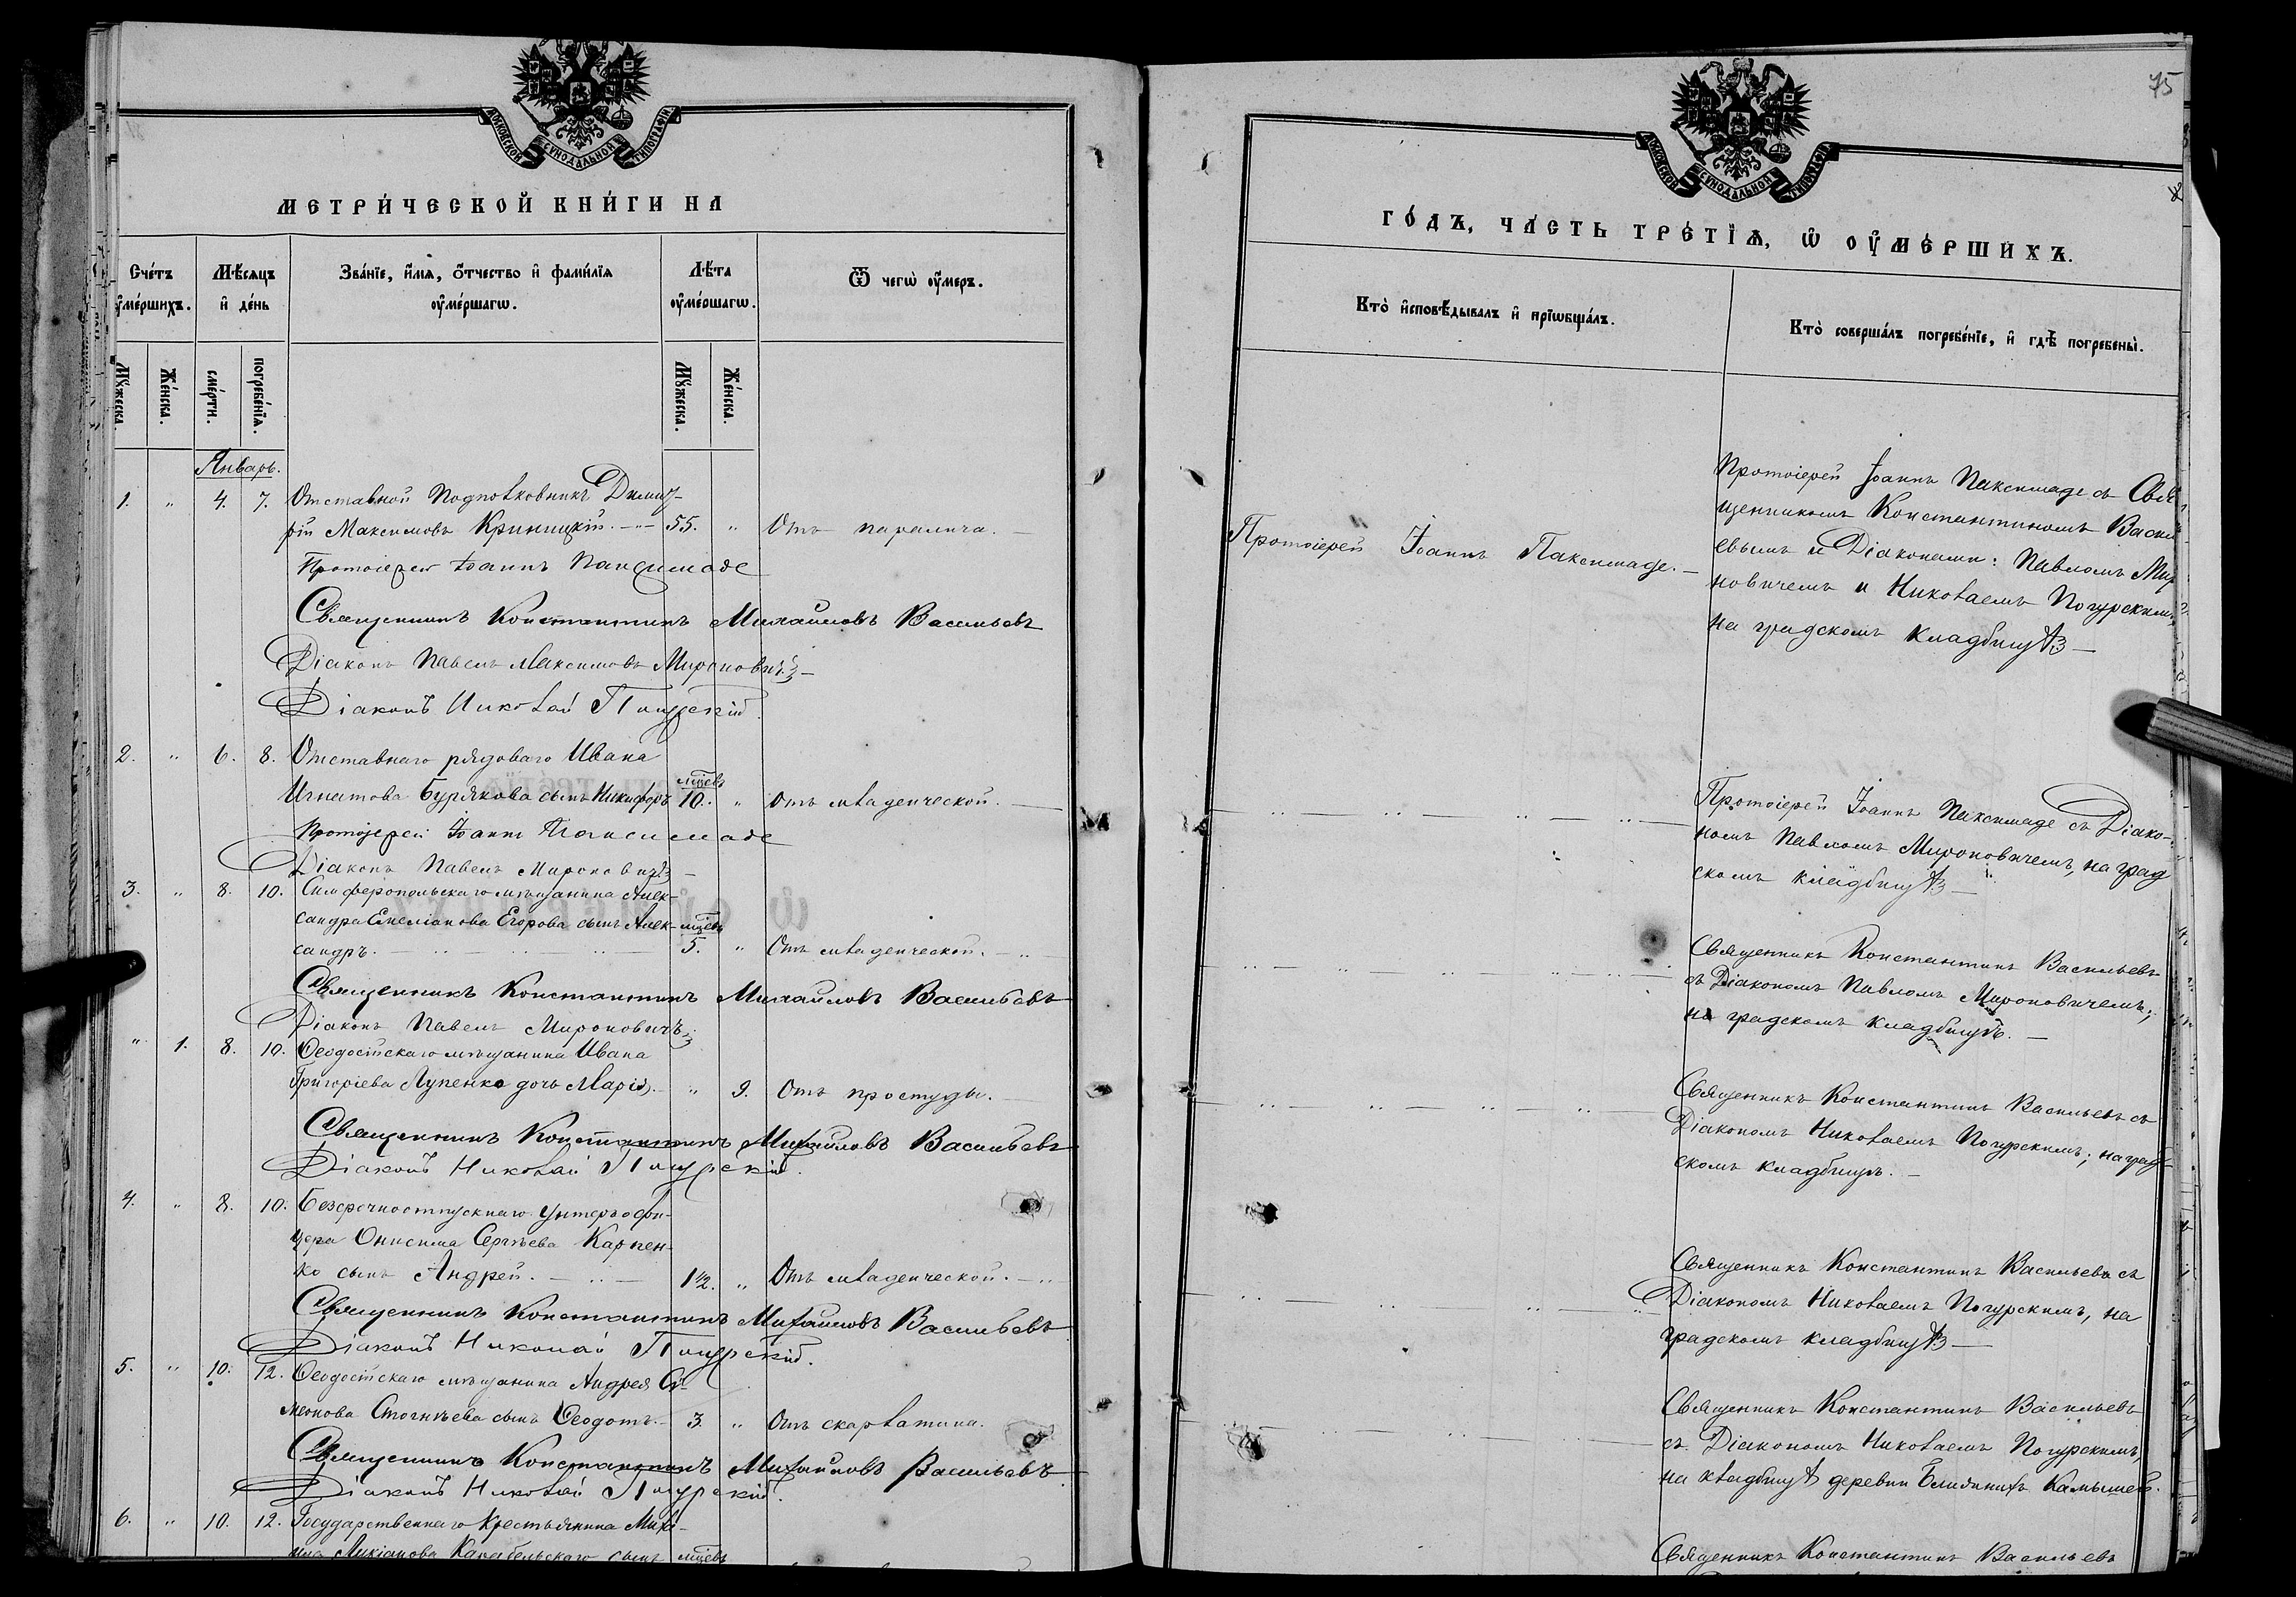 МОСКОВСКОЙ СѴНОДАЛЬНОЙ ТИПОГРАФІИ
МЕТРИ́ЧЕСКОЙ КНИ́ГИ НА
Сче́тъ ᲂу҆ме́ршихъ.
Мѣ́сяцъ и҆ де́нь
Зва́нїе, и҆́мѧ, ѻ҆́тчество и҆ фами́лїѧ ᲂу҆ме́ршагѡ.
Лѣ́та ᲂу҆ме́ршагѡ.
Ѿ чегѡ̀ ᲂу҆́меръ.
Мꙋ́жеска.
Же́нска.
сме́рти.
погребе́нїѧ.
Мꙋ́жеска.
Же́нска.
Январь.
1. " 4. 7. Отставной Подполковникъ Димит-
рій Максимовъ Криницкій. — " — 55. " Отъ паралича. —
Протоіерей Іоаннъ Паксимаде
Священникъ Константинъ Михаиловъ Васильевъ
Діаконъ Павелъ Максимовъ Мироновичъ —
Діаконъ Николай Погурскій.
2. " 6. 8. Отставнаго рядоваго Ивана
Игнатова Бурякова сынъ Никифоръ мцевъ 10. " Отъ младенческой. —
Протоіерей Іоаннъ Паксимаде
Діаконъ Павелъ Мироновичъ —
3. " 8. 10. Симферопольскаго мѣщанина Алек-
сандра Емеліанова Егорова сынъ Алек- мцевъ
сандръ. — 5. " Отъ младенческой. —
Священникъ Константинъ Михаиловъ Васильевъ
Діаконъ Павелъ Мироновичъ
" 1. 8. 10. Ѳеодосійскаго мѣщанина Ивана
Григоріева Лупенко дочь Марія. — " 9. Отъ простуды. —
Священникъ Константинъ Михаиловъ Васильевъ
Діаконъ Николай Погурскій.
4. " 8. 10. Безсрочноотпускнаго Унтеръ-офи-
цера Онисима Сергѣева Карпен-
ко сынъ Андрей. — 1 1/2. " Отъ младенческой. —
Священникъ Константинъ Михаиловъ Васильевъ
Діаконъ Николай Погурскій.
5. " 10. 12. Ѳеодосійскаго мѣщанина Андрея Си-
меонова сынъ Ѳеодотъ. — 3. " Отъ скарлатины.
Священникъ Константинъ Михаиловъ Васильевъ
Діаконъ Николай Погурскій.
6. " 10. 12. Государственнаго Крестьянина Миха-
ила сынъ мцевъ
75
МОСКОВСКОЙ СѴНОДАЛЬНОЙ ТИПОГРАФІИ
ГО́ДЪ, ЧА́СТЬ ТРЕ́ТЇѦ, Ѡ҆ ОУ҆МЕ́РШИХЪ.
Кто̀ и҆сповѣ́дывалъ и҆ прїѡбща́лъ.
Кто̀ соверша́лъ погребе́нїе, и҆ гдѣ̀ погребены̀.
Протоіерей Іоаннъ Паксимаде. —
Протоіерей Іоаннъ Паксимаде съ Свя-
щенникомъ Константиномъ Василь-
евымъ и Діаконами: Павломъ Миро-
новичемъ и Николаемъ Погурскимъ,
на градскомъ кладбищѣ —
Протоіерей Іоаннъ Паксимаде съ Діако-
номъ Павломъ Мироновичемъ, на град-
скомъ кладбищѣ —
Священникъ Константинъ Васильевъ
съ Діакономъ Павломъ Мироновичемъ,
на градскомъ кладбищѣ. —
Священникъ Константинъ Васильевъ съ
Діакономъ Николаемъ Погурскимъ; на град-
скомъ кладбищѣ. —
Священникъ Константинъ Васильевъ съ
Діакономъ Николаемъ Погурскимъ, на
градскомъ кладбищѣ —
Священникъ Константинъ Васильевъ
съ Діакономъ Николаемъ Погурскимъ,
на кладбищѣ деревни Ближнихъ Камышей.
Священникъ Константинъ Васильевъ